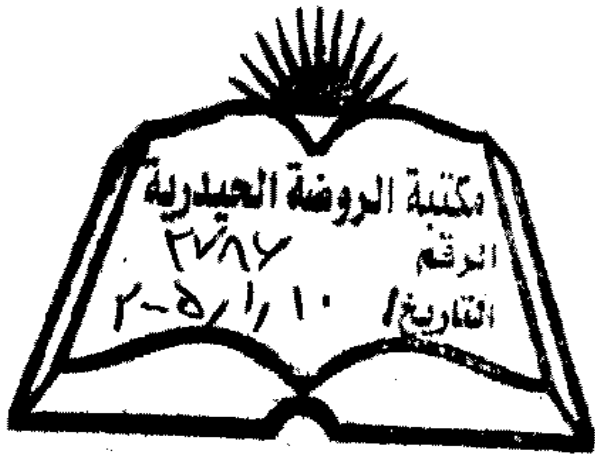 مكتبة الروضة الحيدرية
الرقم ٢٧٨٦
التاريخ/ ١٠/١/٢٠٠٥